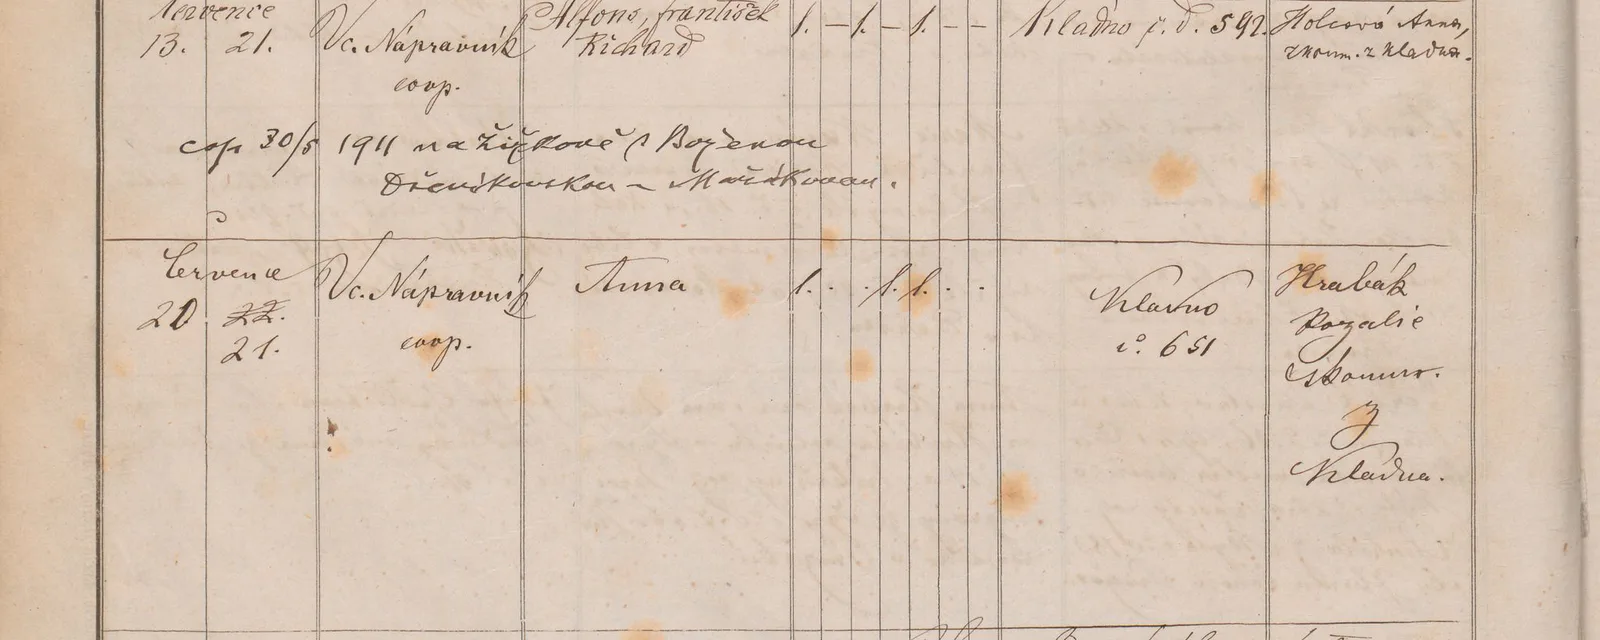 července
13. 21. Vc. Nápravník Alfons, František 1. — 1. — 1. — — Kladno č. d. 592. Holcová Anna,
Richard zkoum. z Kladna.
coop.
cop 30/5 1911 na Žižkově s Boženou
Mařákovou.
Července Vc. Nápravník Anna 1. . . 1. 1. . . Kladno Hrabák
20. 22. č. 651 Rozalie
21. coop. zkoum.
z
Kladna.